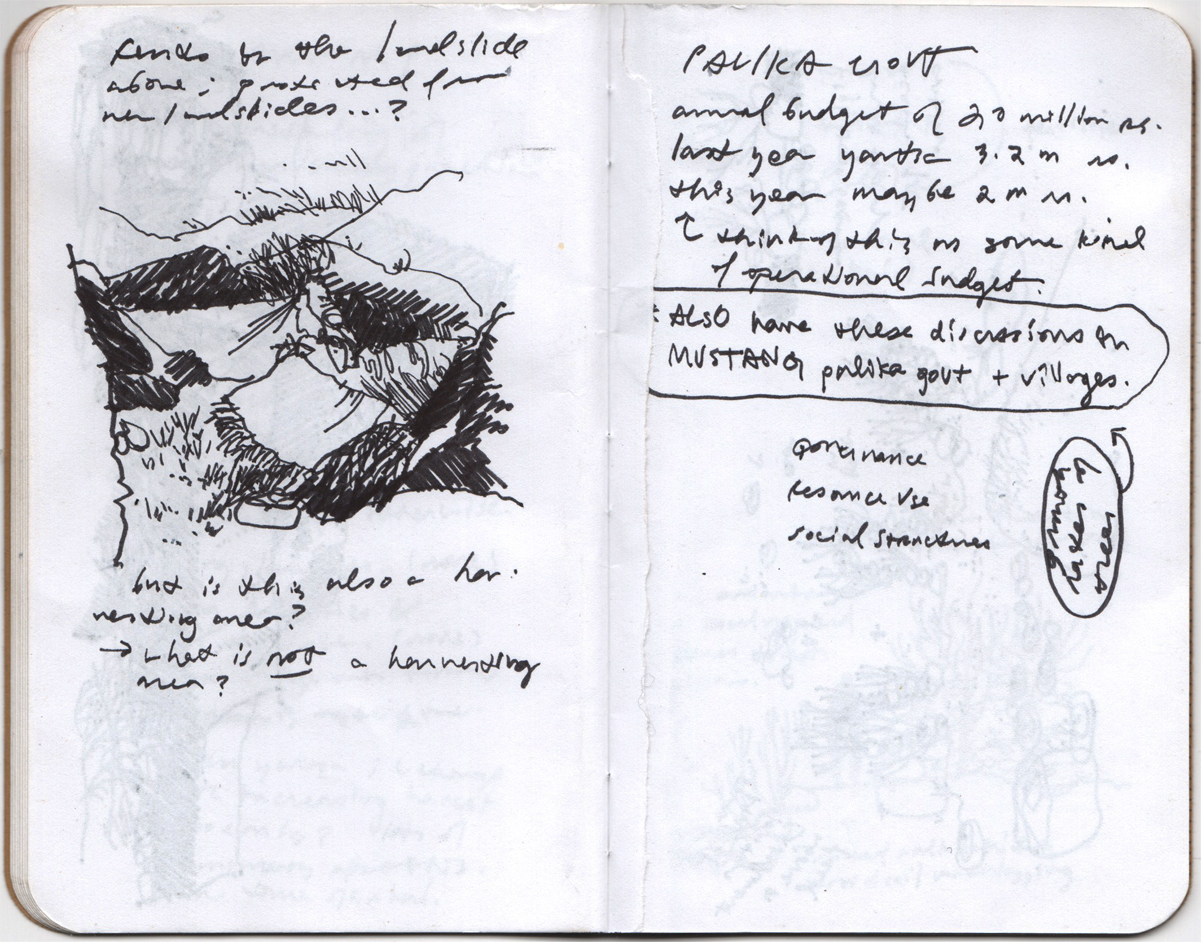 to the landslide
above; protected from
new landslides...?
but is this also a har-
vesting area?
→ what is not a harvesting
area?
PALIKA GOVT
annual budget of 20 million rs.
last year yartsa 3.2 m rs.
this year maybe 2 m rs.
↑ thinking of this as some kind
of operational budget.
: ALSO have these discussions in
MUSTANG palika govt + villages.
governance
resource use
social structures
areas